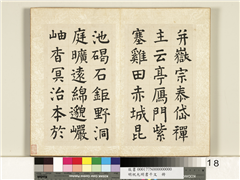 并嶽宗泰岱禪
主云亭鴈門紫
塞雞田赤城昆
池碣石鉅野洞
庭曠遠綿邈巖
岫杳冥治本於
18